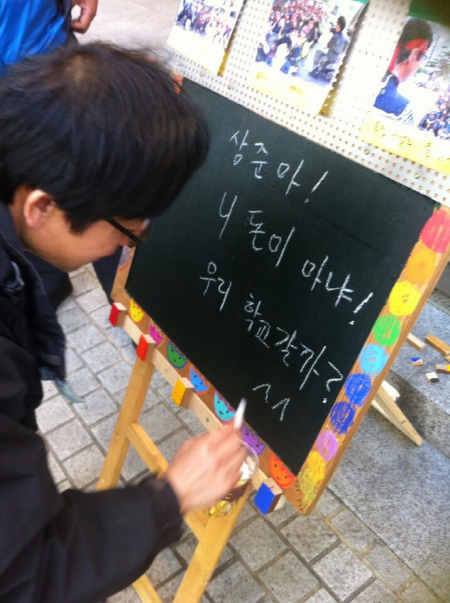 상준아!
니 돈이 마냐!
우리 학교갈까?
^^